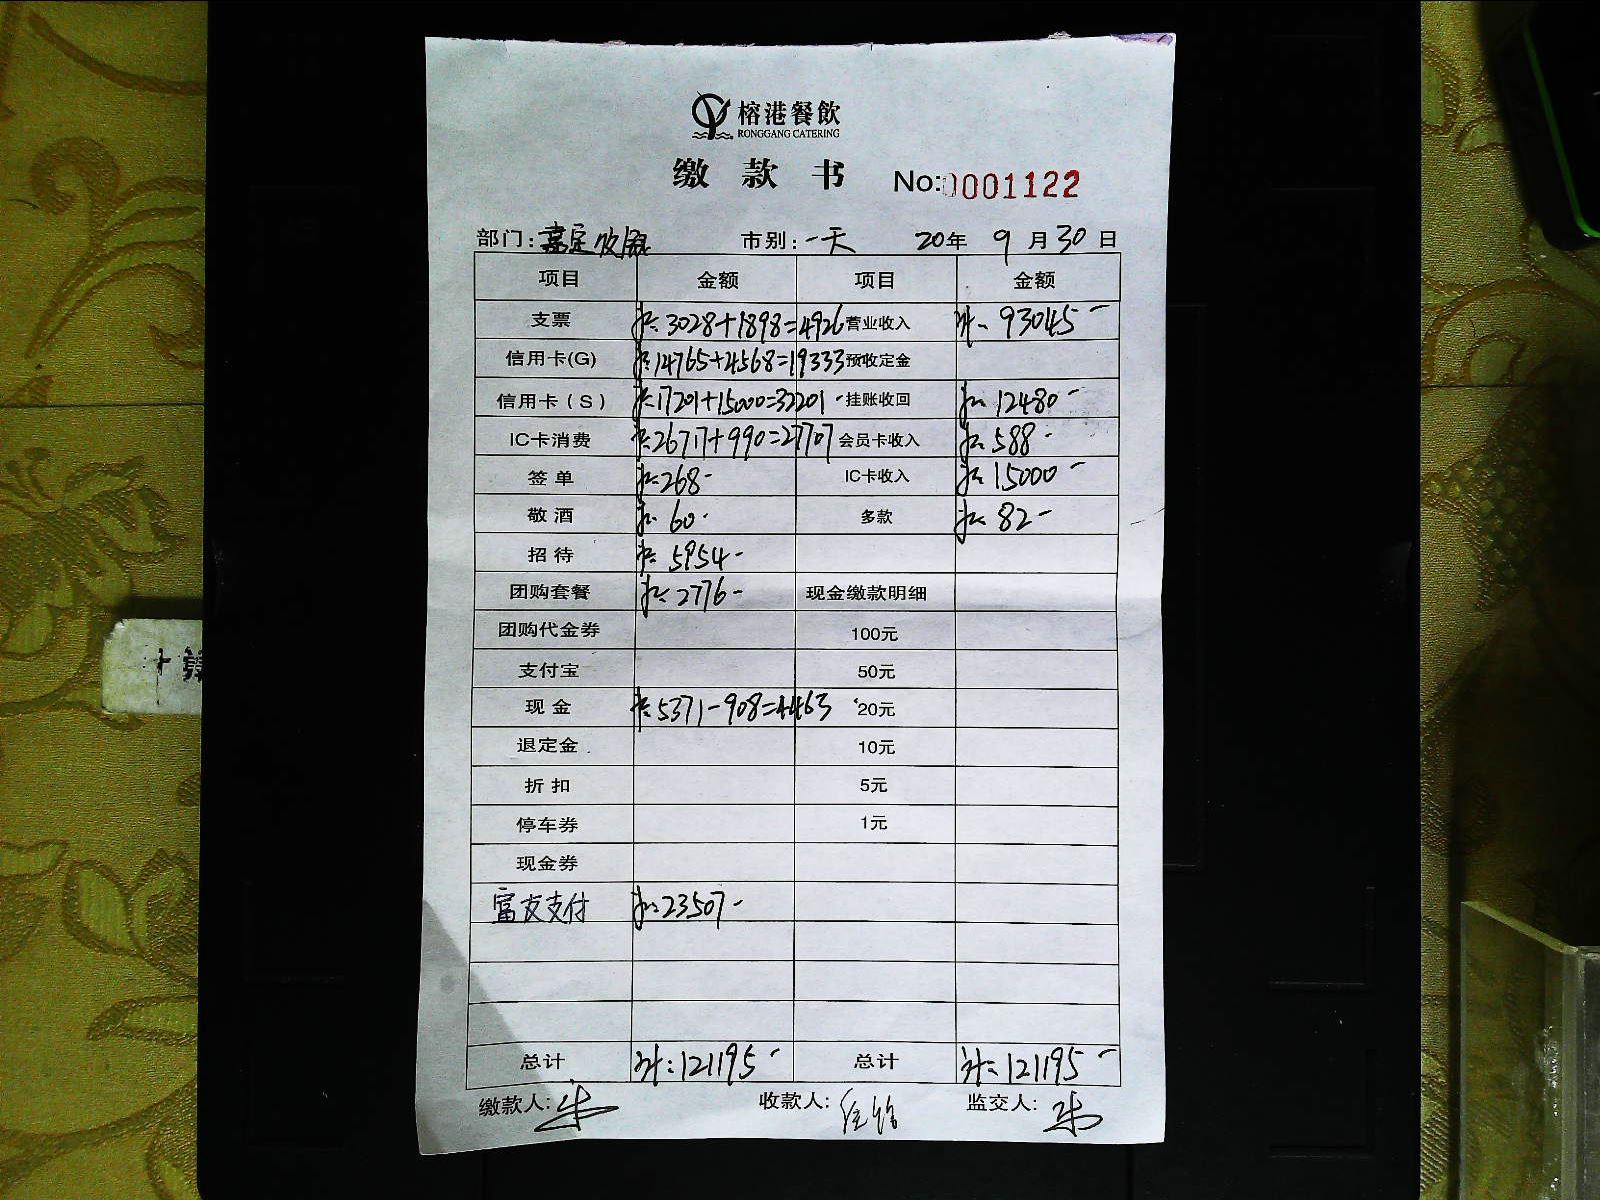 榕港餐飲
RONGGANG CATERING
缴款书 No:0001122
部门:嘉定收银 市别:一天 20年 9月30日
项目 金额 项目 金额
支票 计: 3028+1898=4926 营业收入 计: 93045-
信用卡(G) 计: 14765+4568=19333 预收定金
信用卡(S) 计: 17201+15000=32201- 挂账收回 计: 12480-
IC卡消费 计: 26717+990=27707 会员卡收入 计: 588-
签单 计: 268- IC卡收入 计: 15000-
敬酒 计: 60- 多款 计: 82-
招待 计: 5954-
团购套餐 计: 2776- 现金缴款明细
团购代金券 100元
支付宝 50元
现金 计: 5371-908=4463 20元
退定金 10元
折扣 5元
停车券 1元
现金券
富友支付 计: 23507-
总计 计: 121195- 总计 计: 121195-
缴款人: 收款人: 监交人:
十